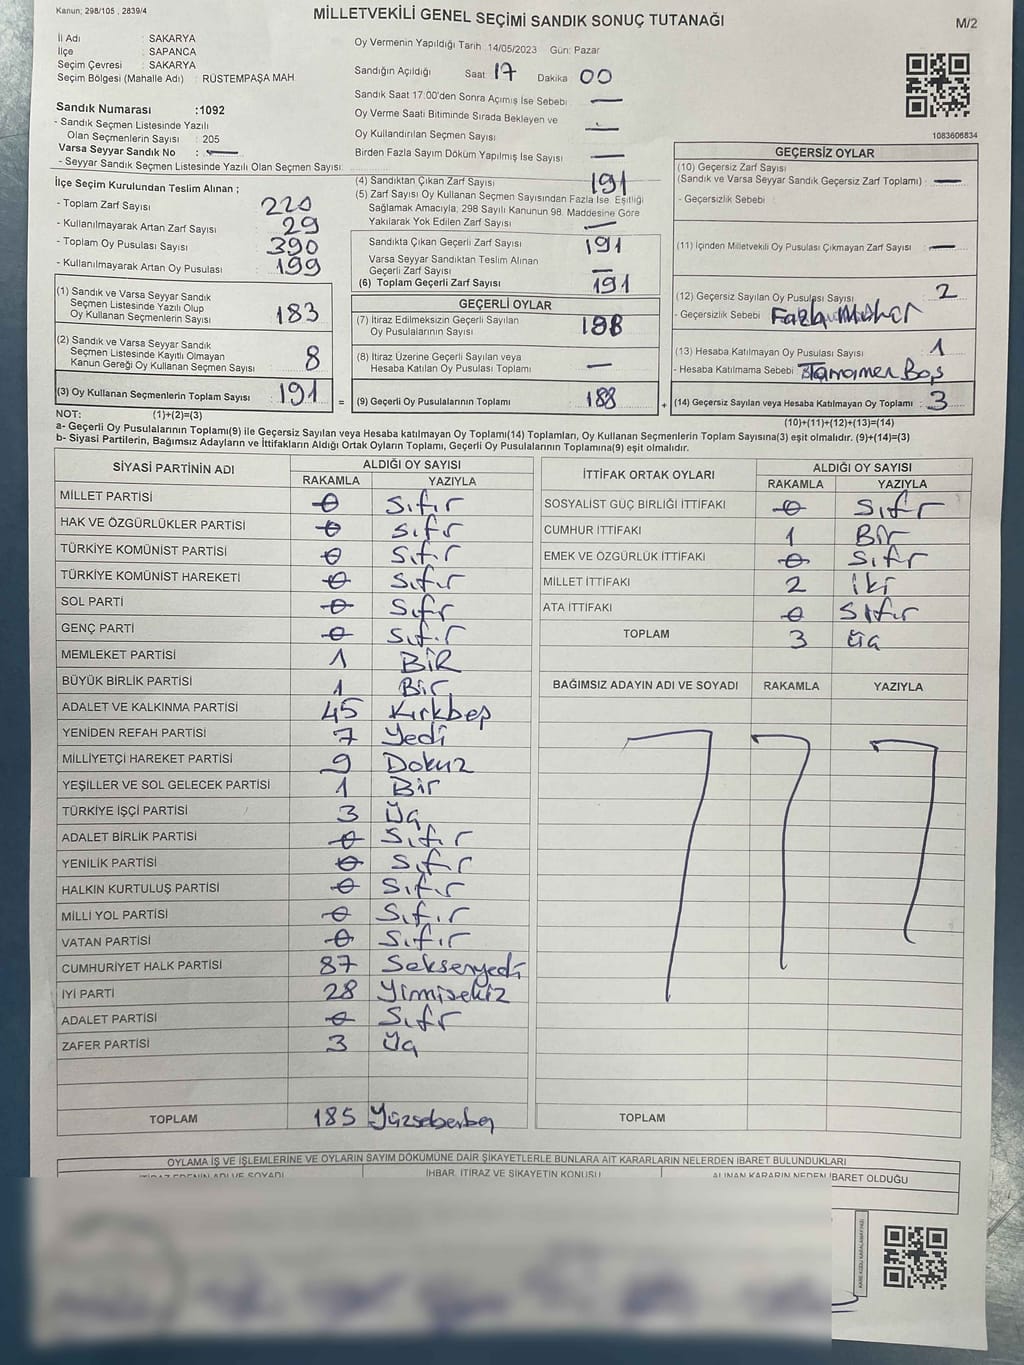 Kanun; 298/105 , 2839/4
MİLLETVEKİLİ GENEL SEÇİMİ SANDIK SONUÇ TUTANAĞI
M/2
İl Adı : SAKARYA
İlçe : SAPANCA
Seçim Çevresi : SAKARYA
Seçim Bölgesi (Mahalle Adı) : RÜSTEMPAŞA MAH
Sandık Numarası :1092
- Sandık Seçmen Listesinde Yazılı
Olan Seçmenlerin Sayısı : 205
Varsa Seyyar Sandık No : —
- Seyyar Sandık Seçmen Listesinde Yazılı Olan Seçmen Sayısı:
Oy Vermenin Yapıldığı Tarih :14/05/2023 Gün: Pazar
Sandığın Açıldığı Saat 17 Dakika 00
Sandık Saat 17:00'den Sonra Açımış İse Sebebi : —
Oy Verme Saati Bitiminde Sırada Bekleyen ve
Oy Kullandırılan Seçmen Sayısı : —
Birden Fazla Sayım Döküm Yapılmış İse Sayısı : —
1083606834
İlçe Seçim Kurulundan Teslim Alınan ;
- Toplam Zarf Sayısı : 220
- Kullanılmayarak Artan Zarf Sayısı : 29
- Toplam Oy Pusulası Sayısı : 390
- Kullanılmayarak Artan Oy Pusulası : 199
(1) Sandık ve Varsa Seyyar Sandık
Seçmen Listesinde Yazılı Olup
Oy Kullanan Seçmenlerin Sayısı : 183
(2) Sandık ve Varsa Seyyar Sandık
Seçmen Listesinde Kayıtlı Olmayan
Kanun Gereği Oy Kullanan Seçmen Sayısı : 8
(3) Oy Kullanan Seçmenlerin Toplam Sayısı : 191
(4) Sandıktan Çıkan Zarf Sayısı : 191
(5) Zarf Sayısı Oy Kullanan Seçmen Sayısından Fazla İse, Eşitliği
Sağlamak Amacıyla; 298 Sayılı Kanunun 98. Maddesine Göre
Yakılarak Yok Edilen Zarf Sayısı : —
Sandıkta Çıkan Geçerli Zarf Sayısı : 191
Varsa Seyyar Sandıktan Teslim Alınan
Geçerli Zarf Sayısı : —
(6) Toplam Geçerli Zarf Sayısı : 191
GEÇERLİ OYLAR
(7) İtiraz Edilmeksizin Geçerli Sayılan
Oy Pusulalarının Sayısı : 188
(8) İtiraz Üzerine Geçerli Sayılan veya
Hesaba Katılan Oy Pusulası Toplamı : —
= (9) Geçerli Oy Pusulalarının Toplamı : 188
GEÇERSİZ OYLAR
(10) Geçersiz Zarf Sayısı
(Sandık ve Varsa Seyyar Sandık Geçersiz Zarf Toplamı) : —
- Geçersizlik Sebebi :
(11) İçinden Milletvekili Oy Pusulası Çıkmayan Zarf Sayısı : —
(12) Geçersiz Sayılan Oy Pusulası Sayısı : 2
- Geçersizlik Sebebi : Fazla Mühür
(13) Hesaba Katılmayan Oy Pusulası Sayısı : 1
- Hesaba Katılmama Sebebi : Tamamen Boş
+ (14) Geçersiz Sayılan veya Hesaba Katılmayan Oy Toplamı : 3
(10)+(11)+(12)+(13)=(14)
NOT: (1)+(2)=(3)
a- Geçerli Oy Pusulalarının Toplamı(9) ile Geçersiz Sayılan veya Hesaba katılmayan Oy Toplamı(14) Toplamları, Oy Kullanan Seçmenlerin Toplam Sayısına(3) eşit olmalıdır. (9)+(14)=(3)
b- Siyasi Partilerin, Bağımsız Adayların ve İttifakların Aldığı Ortak Oyların Toplamı, Geçerli Oy Pusulalarının Toplamına(9) eşit olmalıdır.
SİYASİ PARTİNİN ADI ALDIĞI OY SAYISI
RAKAMLA YAZIYLA
MİLLET PARTİSİ 0 Sıfır
HAK VE ÖZGÜRLÜKLER PARTİSİ 0 Sıfır
TÜRKİYE KOMÜNİST PARTİSİ 0 Sıfır
TÜRKİYE KOMÜNİST HAREKETİ 0 Sıfır
SOL PARTİ 0 Sıfır
GENÇ PARTİ 0 Sıfır
MEMLEKET PARTİSİ 1 BİR
BÜYÜK BİRLİK PARTİSİ 1 Bir
ADALET VE KALKINMA PARTİSİ 45 Kırkbeş
YENİDEN REFAH PARTİSİ 7 Yedi
MİLLİYETÇİ HAREKET PARTİSİ 9 Dokuz
YEŞİLLER VE SOL GELECEK PARTİSİ 1 Bir
TÜRKİYE İŞÇİ PARTİSİ 3 Üç
ADALET BİRLİK PARTİSİ 0 Sıfır
YENİLİK PARTİSİ 0 Sıfır
HALKIN KURTULUŞ PARTİSİ 0 Sıfır
MİLLİ YOL PARTİSİ 0 Sıfır
VATAN PARTİSİ 0 Sıfır
CUMHURİYET HALK PARTİSİ 87 Seksenyedi
İYİ PARTİ 28 Yimisekiz
ADALET PARTİSİ 0 Sıfır
ZAFER PARTİSİ 3 Üç
TOPLAM 185
İTTİFAK ORTAK OYLARI ALDIĞI OY SAYISI
RAKAMLA YAZIYLA
SOSYALİST GÜÇ BİRLİĞİ İTTİFAKI 0 Sıfır
CUMHUR İTTİFAKI 1 Bir
EMEK VE ÖZGÜRLÜK İTTİFAKI 0 Sıfır
MİLLET İTTİFAKI 2 İki
ATA İTTİFAKI 0 Sıfır
TOPLAM 3 Üç
BAĞIMSIZ ADAYIN ADI VE SOYADI RAKAMLA YAZIYLA
TOPLAM
OYLAMA İŞ VE İŞLEMLERİNE VE OYLARIN SAYIM DÖKÜMÜNE DAİR ŞİKAYETLERLE BUNLARA AİT KARARLARIN NELERDEN İBARET BULUNDUKLARI
İTİRAZ EDENİN ADI VE SOYADI İHBAR, İTİRAZ VE ŞİKAYETİN KONUSU ALINAN KARARIN NEDEN İBARET OLDUĞU
KARE KODU KARALAMAYINIZ!